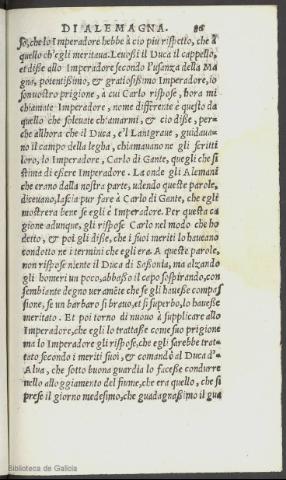 DI ALEMAGNA. 86
so, che lo Imperadore hebbe à cio piu rispetto, che à
quello ch'egli meritaua. Leuossi il Duca il cappello,
et disse allo Imperadore secondo l'usanza della Ma
gna, potentissimo, & gratiosissimo Imperadore, io
son vostro prigione, à cui Carlo rispose, hora mi
chiamate Imperadore, nome differente è questo da
quello che soleuate chiamarmi, & cio disse, per-
che allhora che il Duca, e'l Lantgraue, guidaua-
no il campo della legha, chiamauano ne gli scritti
loro, lo Imperadore, Carlo di Gante, quegli che si
stima di essere Imperadore. La onde gli Alemani
che erano dalla nostra parte, udendo queste parole,
diceuano, lascia pur fare à Carlo di Gante, che egli
mostrera bene se egli è Imperadore. Per questa ca
gione adunque, gli rispose Carlo nel modo che ho
detto, & poi gli disse, che i suoi meriti lo haueano
condotto ne i termini che egli era. A queste parole,
non rispose niente il Duca di Sassonia, ma alzando
gli homeri un poco, abbasso il capo sospirando, con
sembiante degno veramẽte che se gli hauesse compas
sione, se un barbaro si brauo, et si superbo, lo hauesse
meritato. Et poi torno di nuouo à supplicare allo
Imperadore, che egli lo trattasse come suo prigione
ma lo Imperadore gli rispose, che egli sarebbe trat-
tato secondo i meriti suoi, & comandò al Duca d'
Alua, che sotto buona guardia lo facesse condurre
nello alloggiamento del fiume, che era quello, che si
prese il giorno medesimo, che guadagnassimo il gua
Biblioteca de Galicia